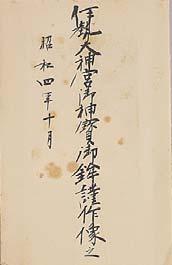 伊勢大神宮御神寶御鉾謹作像之
昭和四年十月